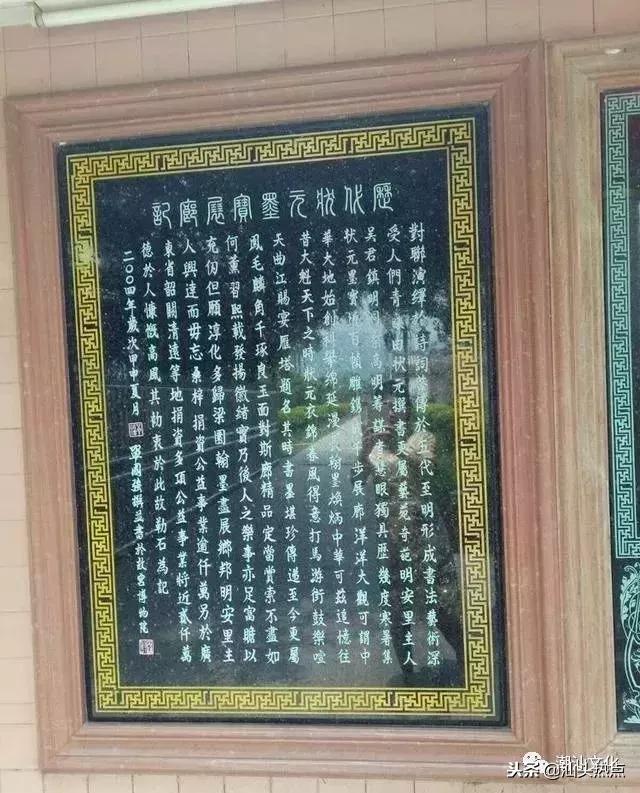 歷代狀元墨寶展廊記
對聯演繹於詩詞 傳於五代至明形成書法藝術深
受人們青 由狀元撰書更屬藝苑奇葩明安里主人
吳君鎮明 高明著 謀 眼獨具歷幾度寒暑集
狀元墨寶 百 雕鐫 步展廊洋洋大觀可謂中
華大地始創科舉綿延漫 翰墨煥炳中華可茲追憶往
昔大魁天下之時狀元衣錦春風得意打馬游街鼓樂喧
天曲江賜宴雁塔題名其時書墨堪珍傳遞至今更屬
鳳毛麟角千琢良玉面對斯廊精品定當賞索不盡如
何薰習熙載發揚徽緒實乃後人之樂事亦足富贍以
充仞但願淳化多歸梁園翰墨盡展鄉邦明安里主
人興達而毋忘桑梓捐資公益事業逾仟萬另於廣
東省韶關清遠等地捐資多項公益事業將近貳仟萬
德於人慷慨高風其勒衷於此故勒石為記
二〇〇四年歲次甲申夏月 國強撰並書於故宮博物院
潮汕文化
头条@汕头热点